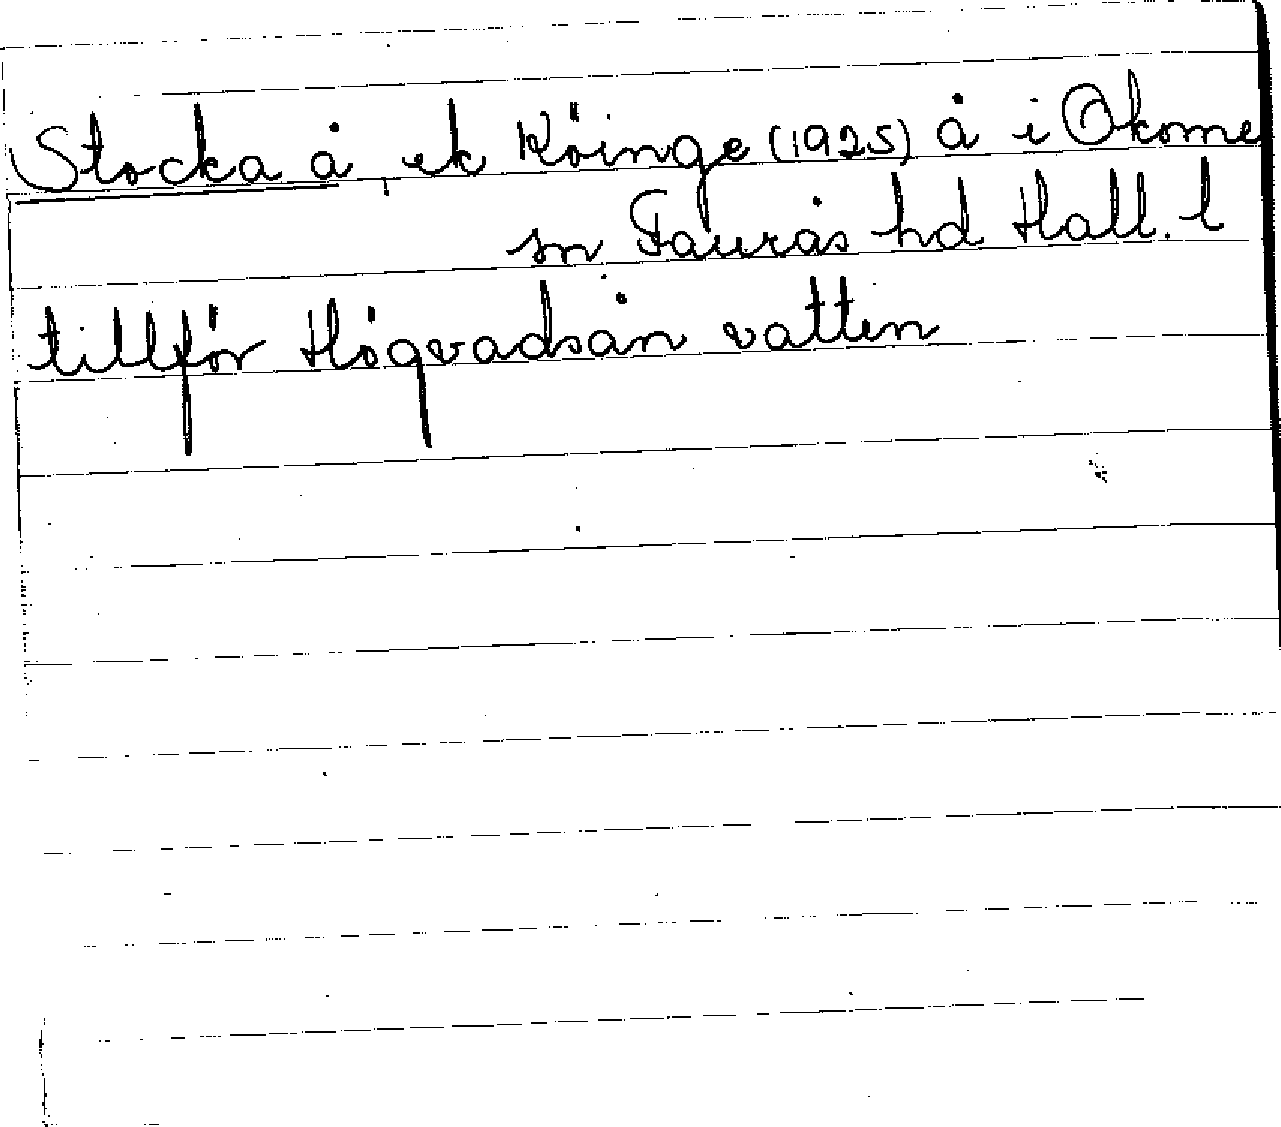 Stocka å, ek Köinge (1925) å i Okome
sn Faurås hd Hall. l
tillför Högvadsån vatten